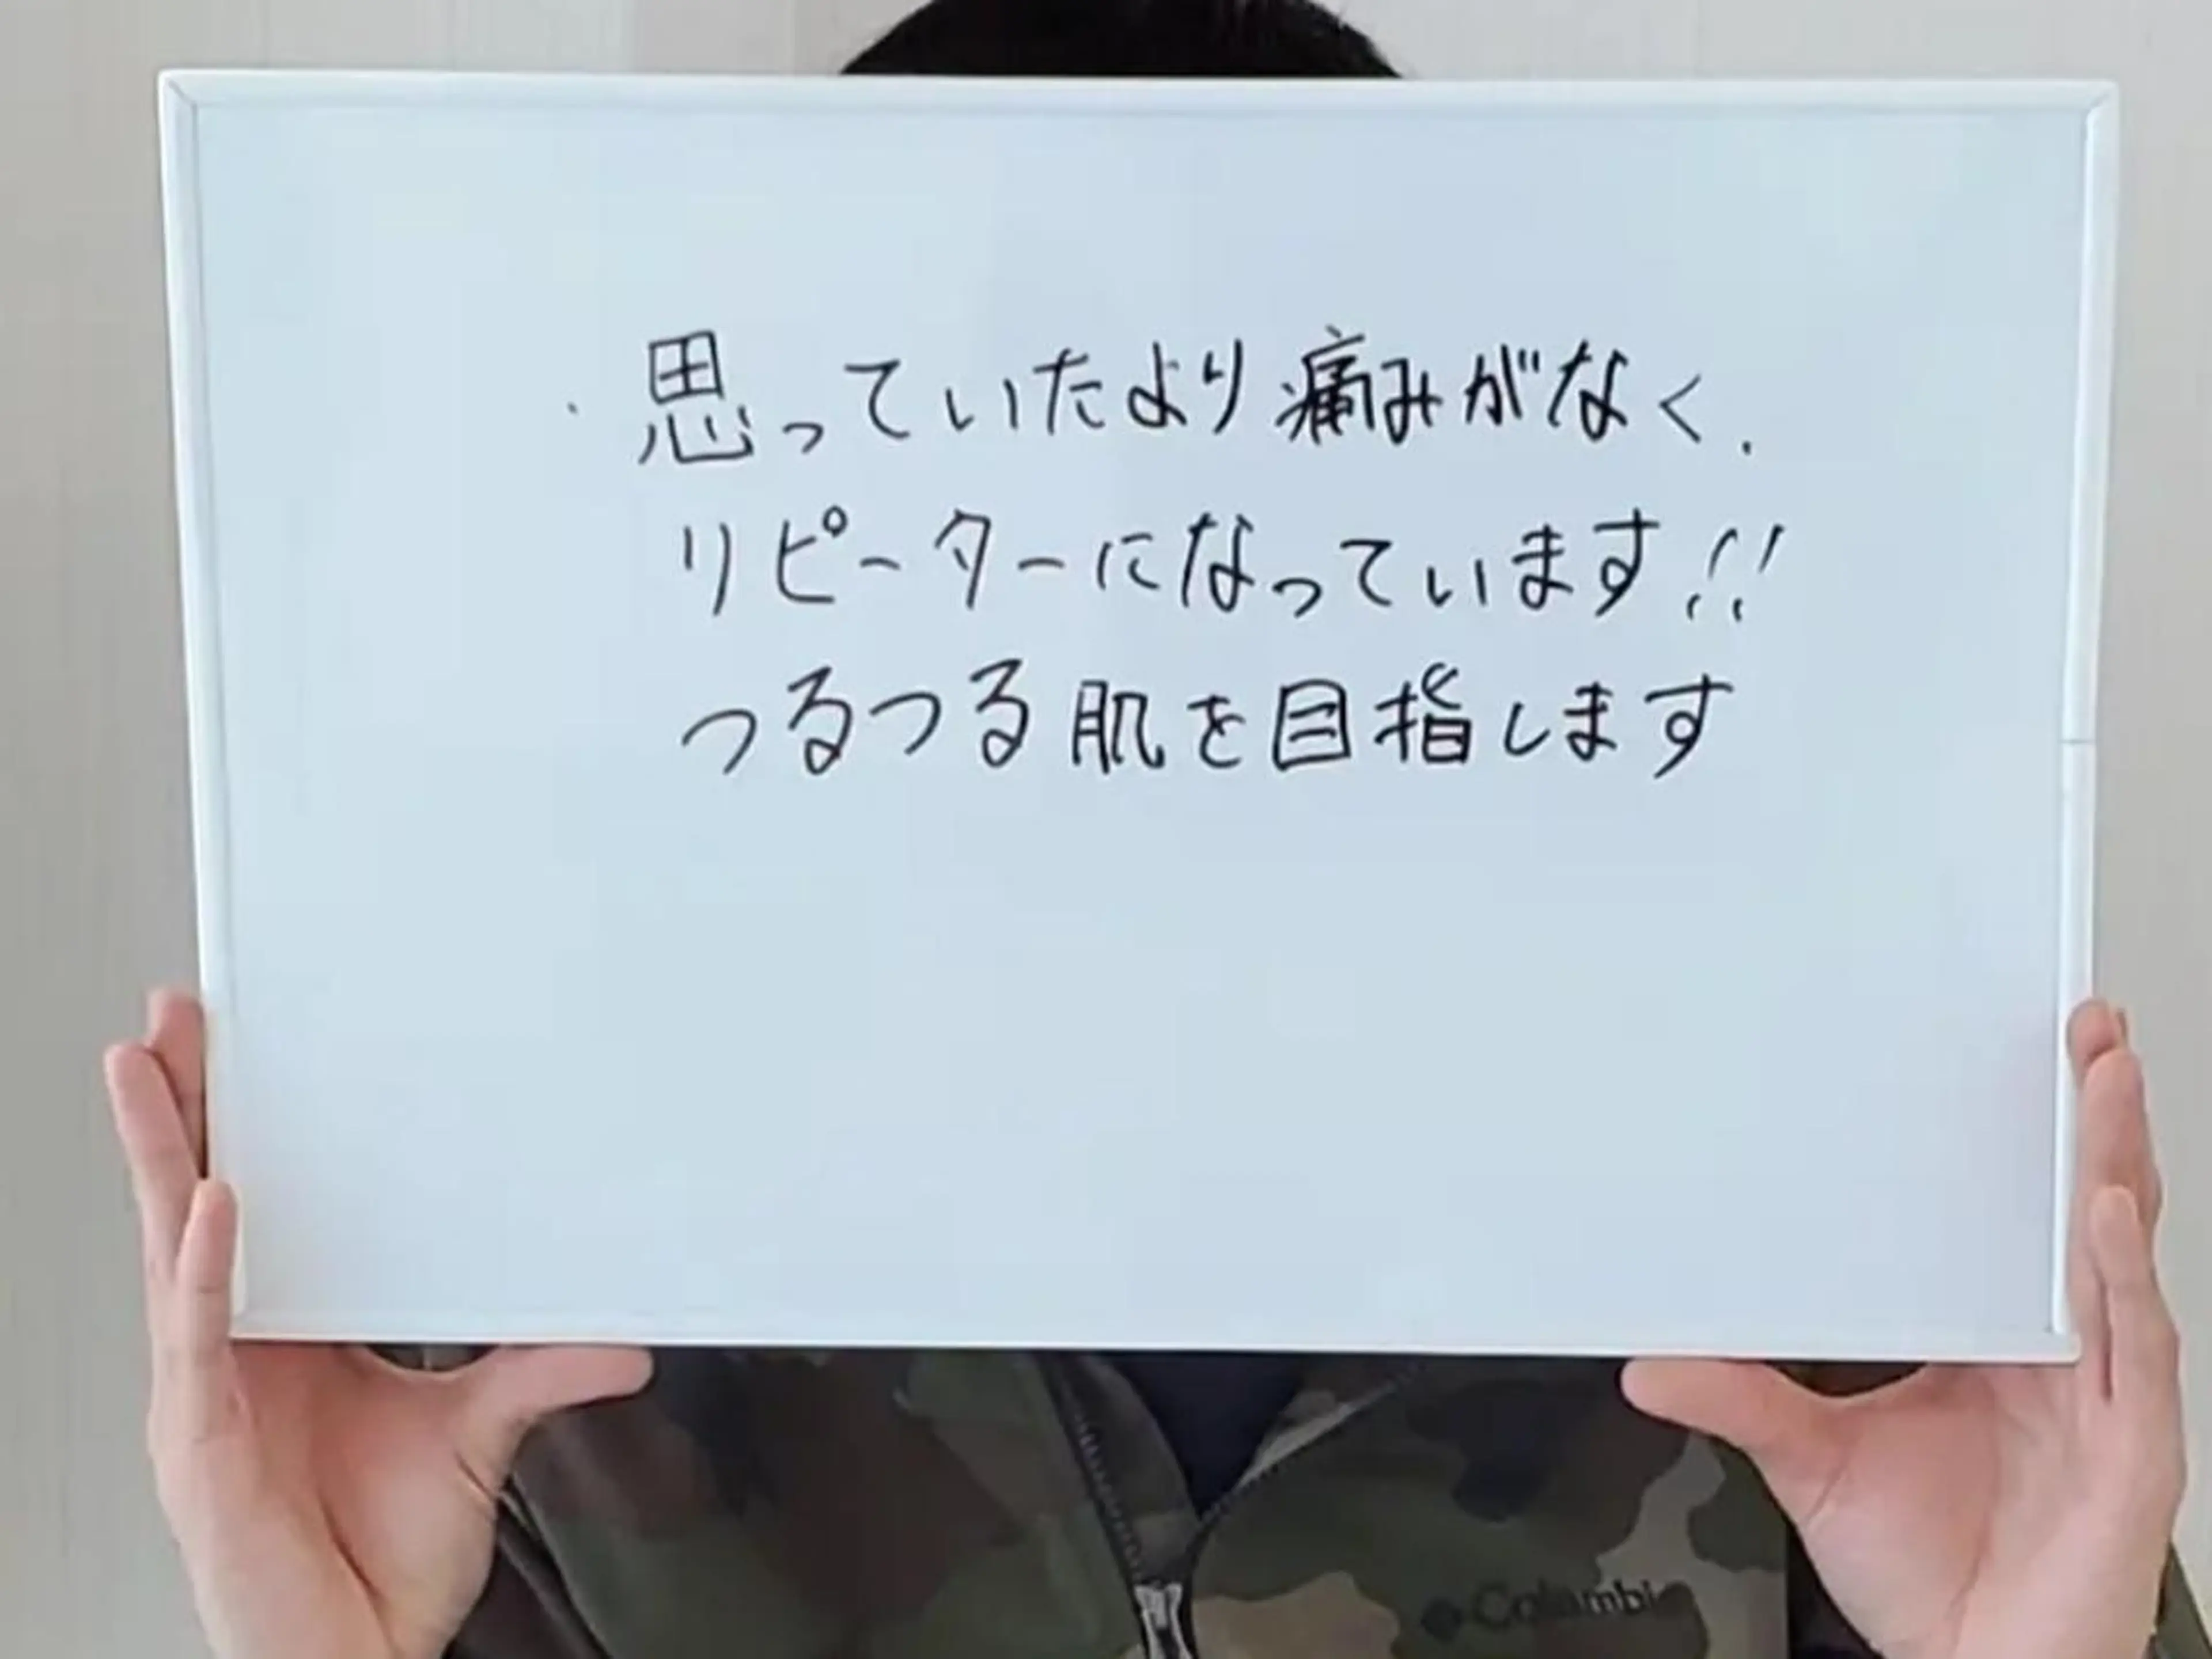 ・思っていたより痛みがなく、
リピーターになっています!!
つるつる肌を目指します
Columbia